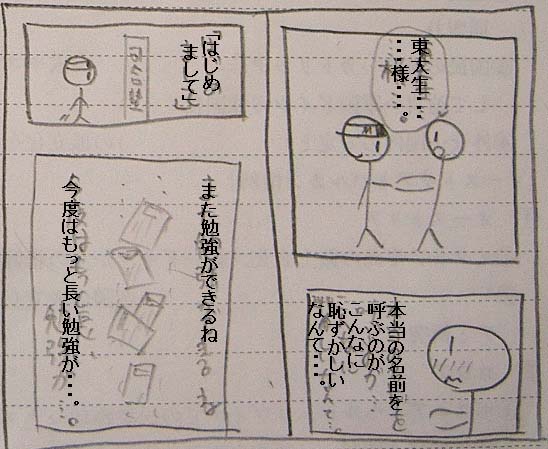 東大生‥‥
‥‥様‥‥。
本当の名前を
呼ぶのが
こんなに
恥ずかしい
なんて‥‥。
「はじめ
まして」
また勉強ができるね
今度はもっと長い勉強が‥‥。